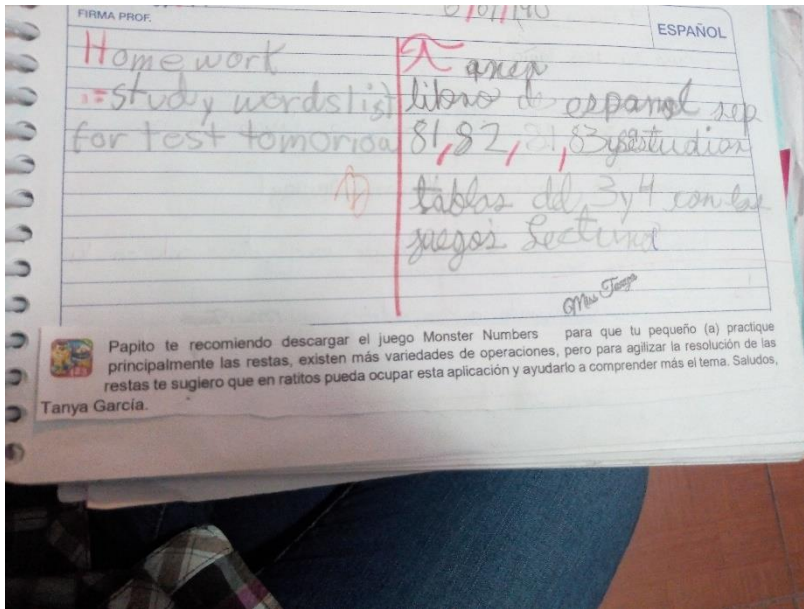 FIRMA PROF.
ESPAÑOL
Homework
= study words list
for test tomorroa
libro de español sep
81, 82, 81, 83 y estudiar
tablas del 3 y 4 con los
juegos Lectura
Miss Tanya
Papito te recomiendo descargar el juego Monster Numbers para que tu pequeño (a) practique
principalmente las restas, existen más variedades de operaciones, pero para agilizar la resolución de las
restas te sugiero que en ratitos pueda ocupar esta aplicación y ayudarlo a comprender más el tema. Saludos,
Tanya García.